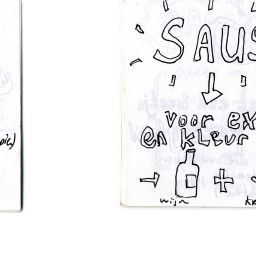 SAUS
voor ex
en kleur
wijn